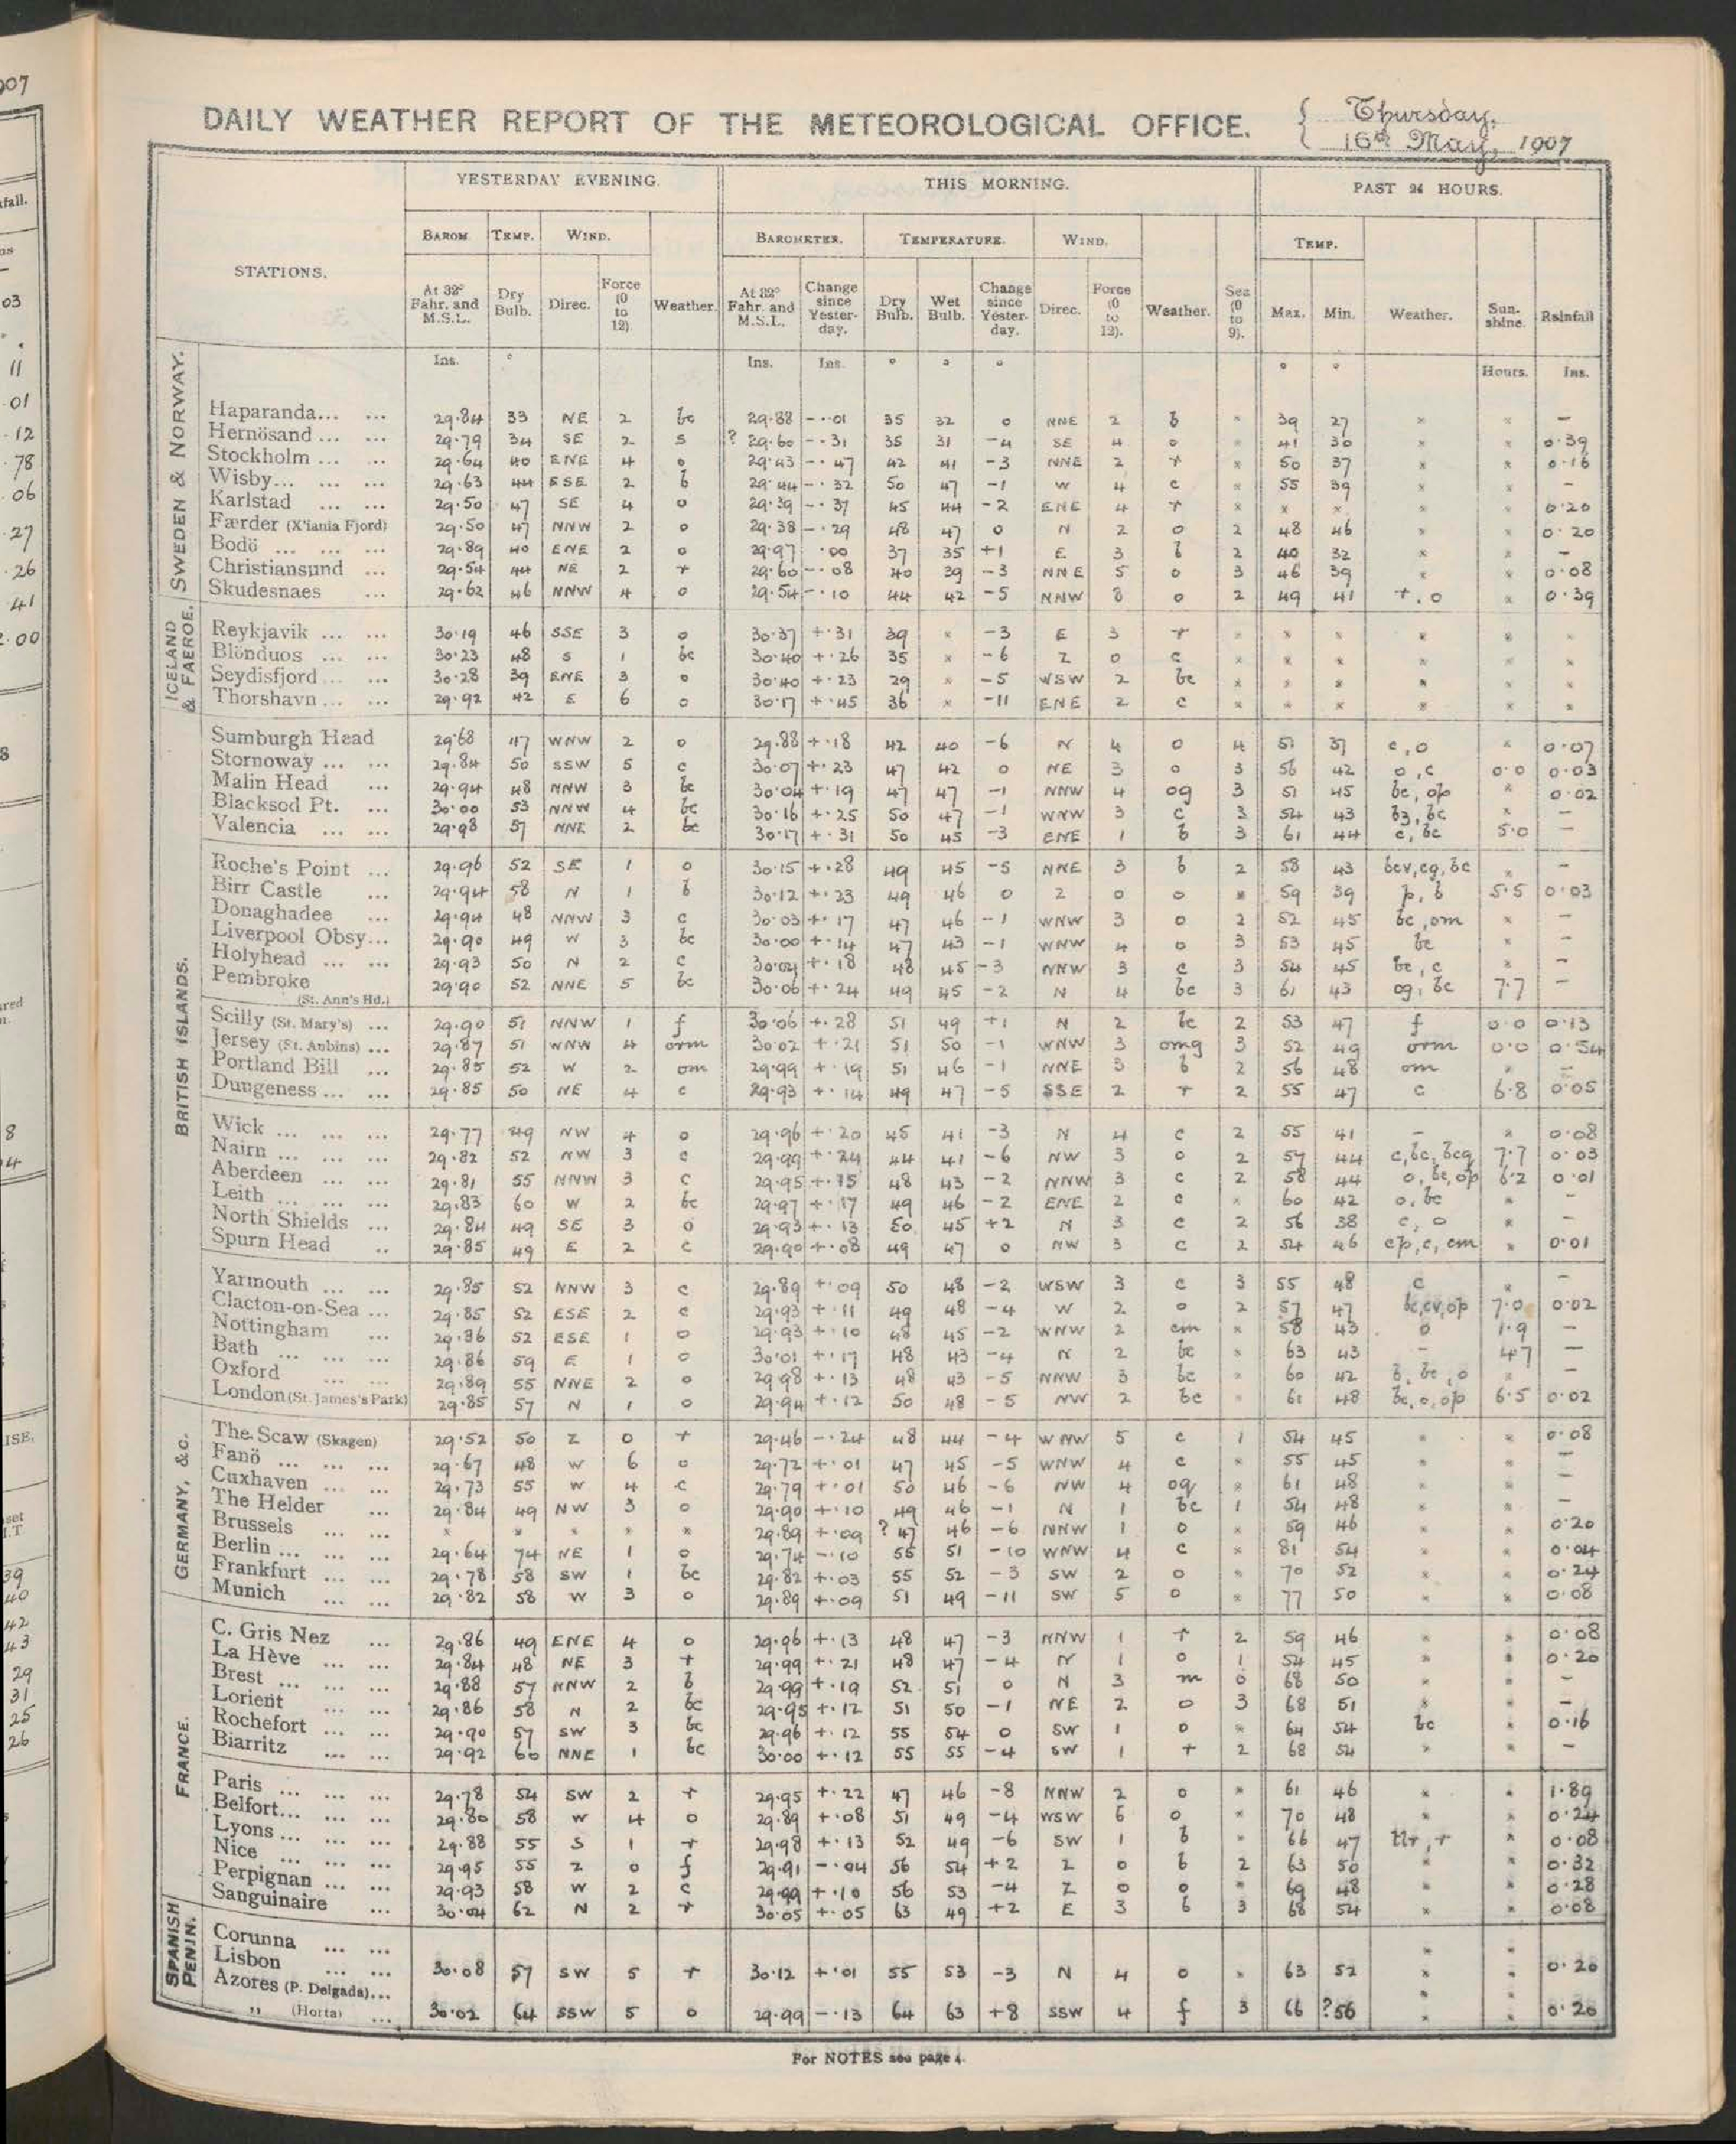 DAILY WEATHER REPORT OF THE METEOROLOGICAL OFFICE. { Thursday,
{ 16th May, 1907
STATIONS. YESTERDAY EVENING. THIS MORNING. PAST 24 HOURS.
BAROM. TEMP. WIND. BAROMETER. TEMPERATURE. WIND. TEMP.
At 32° Fahr. and M.S.L. Dry Bulb. Direc. Force (0 to 12). Weather. At 32° Fahr. and M.S.L. Change since Yester-day. Dry Bulb. Wet Bulb. Change since Yester-day. Direc. Force (0 to 12). Weather. Sea (0 to 9). Max. Min. Weather. Sun-shine. Rainfall
Ins. ° Ins. Ins. ° ° ° ° ° Hours. Ins.
SWEDEN & NORWAY.
Haparanda... ... 29.84 33 NE 2 bc 29.88 -.01 35 32 0 NNE 2 b × 39 27 × × —
Hernösand ... ... 29.79 34 SE 2 s ? 29.60 -.31 35 31 -4 SE 4 o × 41 30 × × 0.39
Stockholm ... ... 29.64 40 ENE 4 o 29.43 -.47 42 41 -3 NNE 2 r × 50 37 × × 0.16
Wisby... ... ... 29.63 44 ESE 2 b 29.44 -.32 50 47 -1 W 4 c × 55 39 × × —
Karlstad ... ... 29.50 47 SE 4 o 29.39 -.37 45 44 -2 ENE 4 r × × × × × 0.20
Færder (X'iania Fjord) 29.50 47 NNW 2 o 29.38 -.29 48 47 0 N 2 o 2 48 46 × × 0.20
Bodö ... ... ... 29.89 40 ENE 2 o 29.97 .00 37 35 +1 E 3 b 2 40 32 × × —
Christiansund ... 29.54 44 NE 2 r 29.60 -.08 40 39 -3 NNE 5 o 3 46 39 × × 0.08
Skudesnaes ... 29.62 46 NNW 4 o 29.54 -.10 44 42 -5 NNW 8 o 2 49 41 r, o × 0.39
ICELAND & FAEROE.
Reykjavik ... ... 30.19 46 SSE 3 o 30.37 +.31 39 × -3 E 3 r × × × × × ×
Blönduos ... ... 30.23 48 S 1 bc 30.40 +.26 35 × -6 Z 0 c × × × × × ×
Seydisfjord ... ... 30.28 39 ENE 3 o 30.40 +.23 29 × -5 WSW 2 bc × × × × × ×
Thorshavn ... ... 29.92 42 E 6 o 30.17 +.45 36 × -11 ENE 2 c × × × × × ×
BRITISH ISLANDS.
Sumburgh Head 29.68 47 WNW 2 o 29.88 +.18 42 40 -6 N 4 o 4 51 37 c, o × 0.07
Stornoway ... ... 29.84 50 SSW 5 c 30.07 +.23 47 42 0 NE 3 o 3 56 42 o, c 0.0 0.03
Malin Head ... 29.94 48 NNW 3 bc 30.04 +.19 47 47 -1 NNW 4 og 3 51 45 bc, op × 0.02
Blacksod Pt. ... 30.00 53 NNW 4 bc 30.16 +.25 50 47 -1 WNW 3 c 3 54 43 bz, bc × —
Valencia ... ... 29.98 57 NNE 2 bc 30.17 +.31 50 45 -3 ENE 1 b 3 61 44 c, bc 5.0 —
Roche's Point ... 29.96 52 SE 1 o 30.15 +.28 49 45 -5 NNE 3 b 2 58 43 bcv, cg, bc × —
Birr Castle ... 29.94 58 N 1 b 30.12 +.23 49 46 0 Z 0 o × 59 39 p, b 5.5 0.03
Donaghadee ... 29.94 48 NNW 3 c 30.03 +.17 47 46 -1 WNW 3 o 2 52 45 bc, om × —
Liverpool Obsy... 29.90 49 W 3 bc 30.00 +.14 47 43 -1 WNW 4 o 3 53 45 bc × —
Holyhead ... ... 29.93 50 N 2 c 30.04 +.18 48 45 -3 NNW 3 c 3 54 45 bc, c × —
Pembroke (St. Ann's Hd.) 29.90 52 NNE 5 bc 30.06 +.24 49 45 -2 N 4 bc 3 61 43 og, bc 7.7 —
Scilly (St. Mary's) ... 29.90 51 NNW 1 f 30.06 +.28 51 49 +1 N 2 bc 2 53 47 f 0.0 0.13
Jersey (St. Aubins) ... 29.87 51 WNW 4 orm 30.02 +.21 51 50 -1 WNW 3 omg 3 52 49 orm 0.0 0.54
Portland Bill ... 29.85 52 W 2 om 29.99 +.19 51 46 -1 NNE 3 b 2 56 48 om × —
Dungeness ... ... 29.85 50 NE 4 c 29.93 +.14 49 47 -5 SSE 2 r 2 55 47 c 6.8 0.05
Wick ... ... ... 29.77 49 NW 4 o 29.96 +.20 45 41 -3 N 4 c 2 55 41 — × 0.08
Nairn ... ... ... 29.82 52 NW 3 c 29.99 +.24 44 41 -6 NW 3 o 2 57 44 c, bc, bcq 7.7 0.03
Aberdeen ... ... 29.81 55 NNW 3 c 29.95 +.15 48 43 -2 NNW 3 c 2 58 44 o, bc, op 6.2 0.01
Leith ... ... ... 29.83 60 W 2 bc 29.97 +.17 49 46 -2 ENE 2 c × 60 42 o, bc × —
North Shields ... 29.84 49 SE 3 o 29.93 +.13 50 45 +2 N 3 c 2 56 38 c, o × —
Spurn Head .. 29.85 49 E 2 c 29.90 +.08 49 47 0 NW 3 c 2 54 46 cp, c, cm × 0.01
Yarmouth ... ... 29.85 52 NNW 3 c 29.89 +.09 50 48 -2 WSW 3 c 3 55 48 c × —
Clacton-on-Sea ... 29.85 52 ESE 2 c 29.93 +.11 49 48 -4 W 2 o 2 57 47 bc, cv, op 7.0 0.02
Nottingham ... 29.86 52 ESE 1 o 29.93 +.10 48 45 -2 WNW 2 cm × 58 43 o 1.9 —
Bath ... ... ... 29.86 59 E 1 o 30.01 +.17 48 43 -4 N 2 bc × 63 43 — 4.7 —
Oxford ... ... 29.89 55 NNE 2 o 29.98 +.13 48 43 -5 NNW 3 bc × 60 42 b, bc, o × —
London (St. James's Park) 29.85 57 N 1 o 29.94 +.12 50 48 -5 NW 2 bc × 61 48 bc, o, op 6.5 0.02
GERMANY, &c.
The Scaw (Skagen) 29.52 50 Z 0 r 29.46 -.24 48 44 -4 WNW 5 c 1 54 45 × × 0.08
Fanö ... ... ... 29.67 48 W 6 o 29.72 +.01 47 45 -5 WNW 4 c × 55 45 × × —
Cuxhaven ... ... 29.73 55 W 4 c 29.79 +.01 50 46 -6 NW 4 oq × 61 48 × × —
The Helder ... 29.84 49 NW 3 o 29.90 +.10 49 46 -1 N 1 bc 1 54 48 × × —
Brussels ... ... × × × × × 29.89 +.09 ? 47 46 -6 NNW 1 o × 59 46 × × 0.20
Berlin ... ... ... 29.64 74 NE 1 o 29.74 -.10 55 51 -10 WNW 4 c × 81 54 × × 0.04
Frankfurt ... ... 29.78 58 SW 1 bc 29.82 +.03 55 52 -3 SW 2 o × 70 52 × × 0.24
Munich ... ... 29.82 58 W 3 o 29.89 +.09 51 49 -11 SW 5 o × 77 50 × × 0.08
FRANCE.
C. Gris Nez ... 29.86 49 ENE 4 o 29.96 +.13 48 47 -3 NNW 1 r 2 59 46 × × 0.08
La Hève ... ... 29.84 48 NE 3 r 29.99 +.21 48 47 -4 N 1 o 1 54 45 × × 0.20
Brest ... ... ... 29.88 57 NNW 2 b 29.99 +.19 52 51 0 N 3 m 0 68 50 × × —
Lorient ... ... 29.86 58 N 2 bc 29.95 +.12 51 50 -1 NE 2 o 3 68 51 × × —
Rochefort ... ... 29.90 57 SW 3 bc 29.96 +.12 55 54 0 SW 1 o × 64 54 bc × 0.16
Biarritz ... ... 29.92 60 NNE 1 bc 30.00 +.12 55 55 -4 SW 1 r 2 68 54 × × —
Paris ... ... ... 29.78 54 SW 2 r 29.95 +.22 47 46 -8 NNW 2 o × 61 46 × × 1.89
Belfort... ... ... 29.80 58 W 4 o 29.89 +.08 51 49 -4 WSW 6 o × 70 48 × × 0.24
Lyons ... ... ... 29.88 55 S 1 r 29.98 +.13 52 49 -6 SW 1 b × 66 47 tlr, r × 0.08
Nice ... ... ... 29.95 55 Z 0 f 29.91 -.04 56 54 +2 Z 0 b 2 63 50 × × 0.32
Perpignan ... ... 29.93 58 W 2 c 29.99 +.10 56 53 -4 Z 0 o × 69 48 × × 0.28
Sanguinaire ... 30.04 62 N 2 r 30.05 +.05 63 49 +2 E 3 b 3 68 54 × × 0.08
SPANISH PENIN.
Corunna ... ... ×
Lisbon ... ... 30.08 57 SW 5 r 30.12 +.01 55 53 -3 N 4 o × 63 52 × × 0.20
Azores (P. Delgada)...
„ (Horta) ... 30.02 64 SSW 5 o 29.99 -.13 64 63 +8 SSW 4 f 3 66 ?56 × × 0.20
For NOTES see page 4.